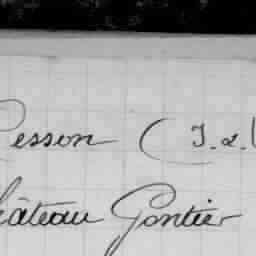 Cesson (I.&.V
Château Gontier